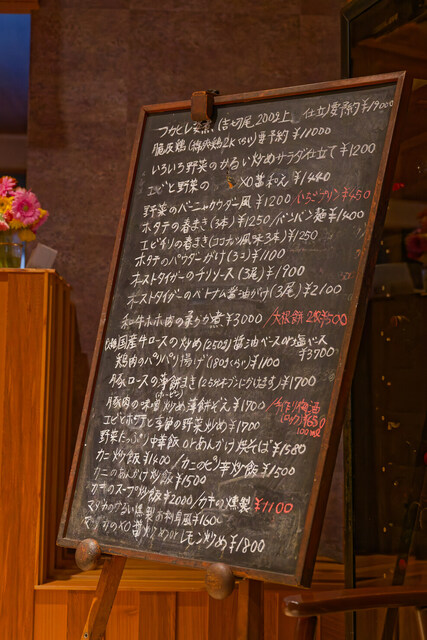 フカヒレ姿煮(吉切尾200g上 仕立)要予約¥19000
脆皮鶏(2kぐらい)要予約¥11000
いろいろ野菜のかるい炒めサラダ仕立て¥1200
エビと野菜の XO醤和え¥1440
野菜のバーニャカウダー風¥1200 ¥450
ホタテの春まき(3本)¥1250/バンバン麺¥1400
エビイリの春まき(ココナツ風味3本)¥1250
ホタテのパウダーがけ(3コ)¥1100
ゴーストタイガーのチリソース(3尾)¥1900
ゴーストタイガーのベトナム醤油がけ(3尾)¥2100
和牛ホホ肉の柔らか煮¥3000 2枚¥500
国産牛ロースの炒め(250g)醤油ベースor塩ベース
¥3700
鶏肉のパリパリ揚げ(180gぐらい)¥1100
豚ロースの辛餅まき¥1700
豚肉の味噌炒め薄餅ぞえ¥1700 手作り梅酒
(ロック)¥650
100ml
エビとホタテと季節の野菜炒め¥1700
野菜たっぷり中華飯orあんかけ焼そば¥1580
カニ炒飯¥1400/カニのピリ辛炒飯¥1500
カニのあんかけ炒飯¥1500
カキのスープ炒飯¥2000/カキの燻製¥1100
マグロのかるい燻製お刺身風¥1600
XO醤炒めorレモン炒め¥1800